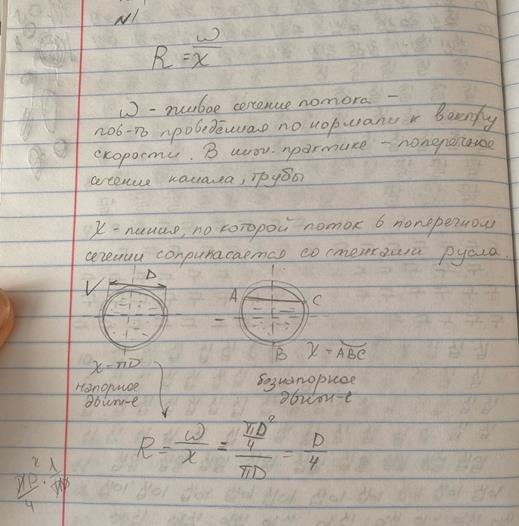 N1
R = ω/χ
ω - живое сечение потока -
пов-ть проведённая по нормали к вектру
скорости. В инж. практике - поперечное
сечение канала, трубы
χ - линия, по которой поток в поперечном
сечении соприкасается со стенками русла.
D
A C
B
χ = πD χ = ABC
напорное безнапорное
движ-е движ-е
R = ω/χ = (πD²/4)/(πD) = D/4